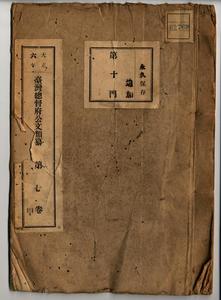 永久保存
追加
第十門
大正
六年
臺灣總督府公文類纂
第七卷